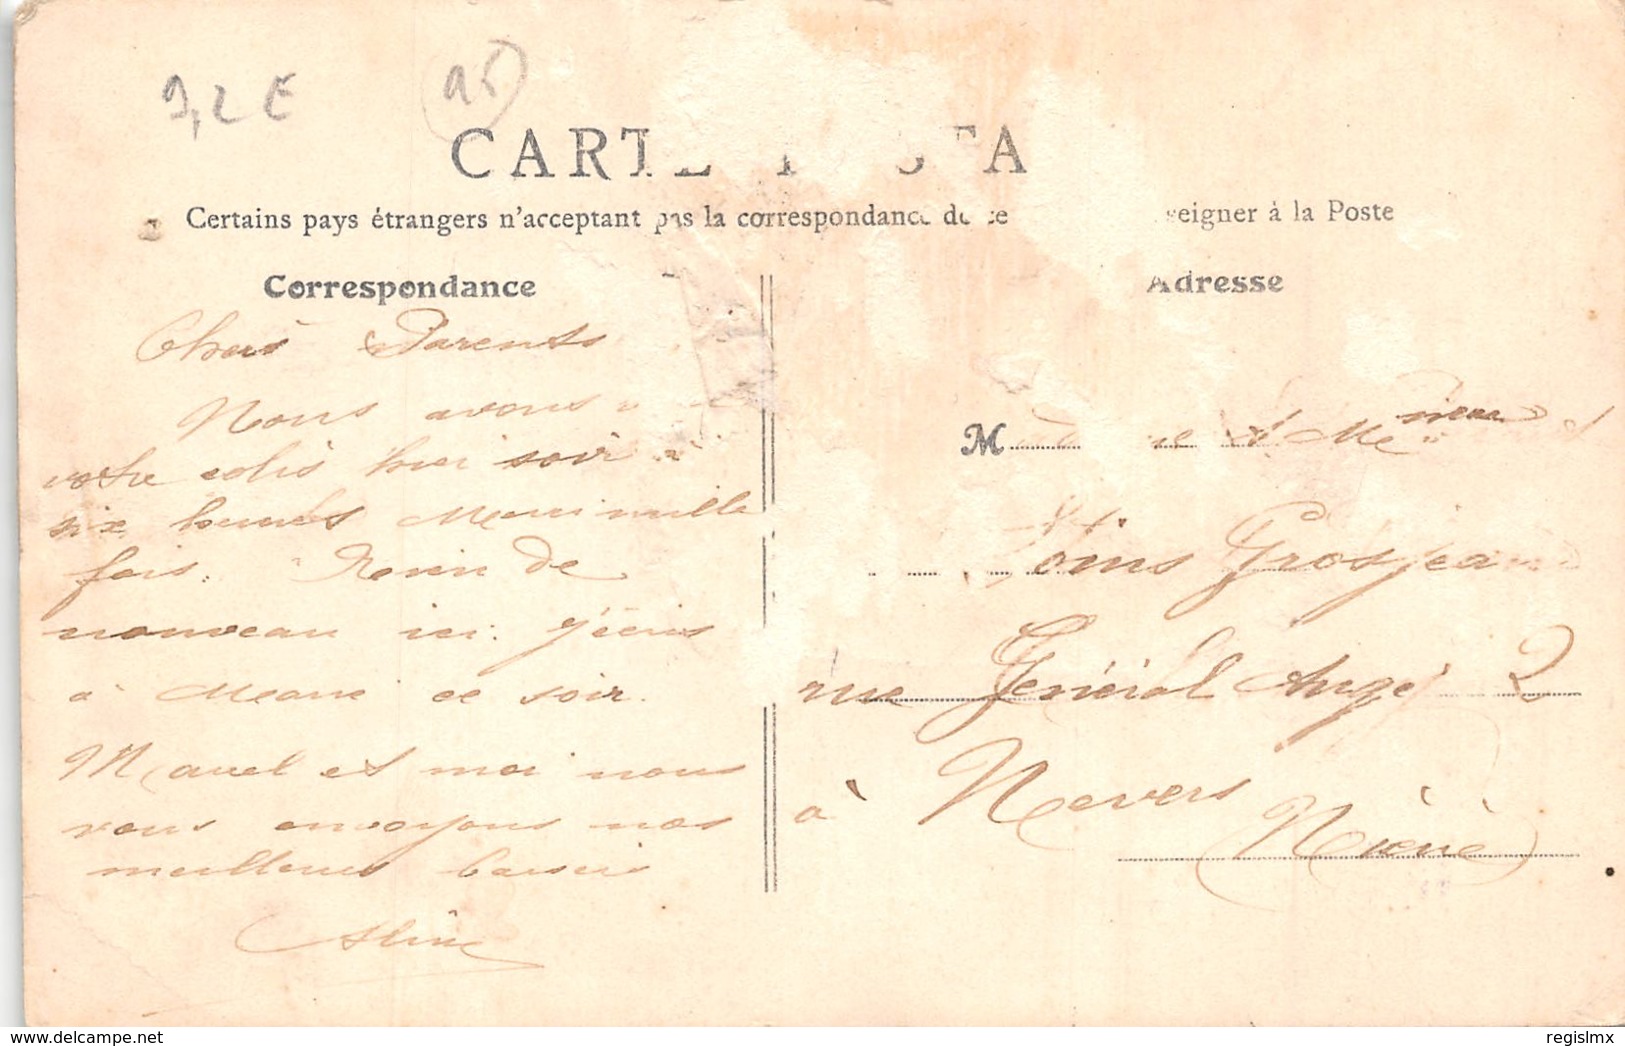 9,2 E
95
CARTE POSTA
Certains pays étrangers n'acceptant pas la correspondance de ce seigner à la Poste
Correspondance
Adresse
Chers Parents
Nous avons
votre colis hier soir à
six heures Merci mille
fois. Rien de
nouveau ici. J'écris
à Meme ce soir.
Marcel et moi nous
vous envoyons nos
meilleurs baisers
Aline
M
Grosjean
rue Général Auger 2
à Nevers
Nièvre
www.delcampe.net
regislmx